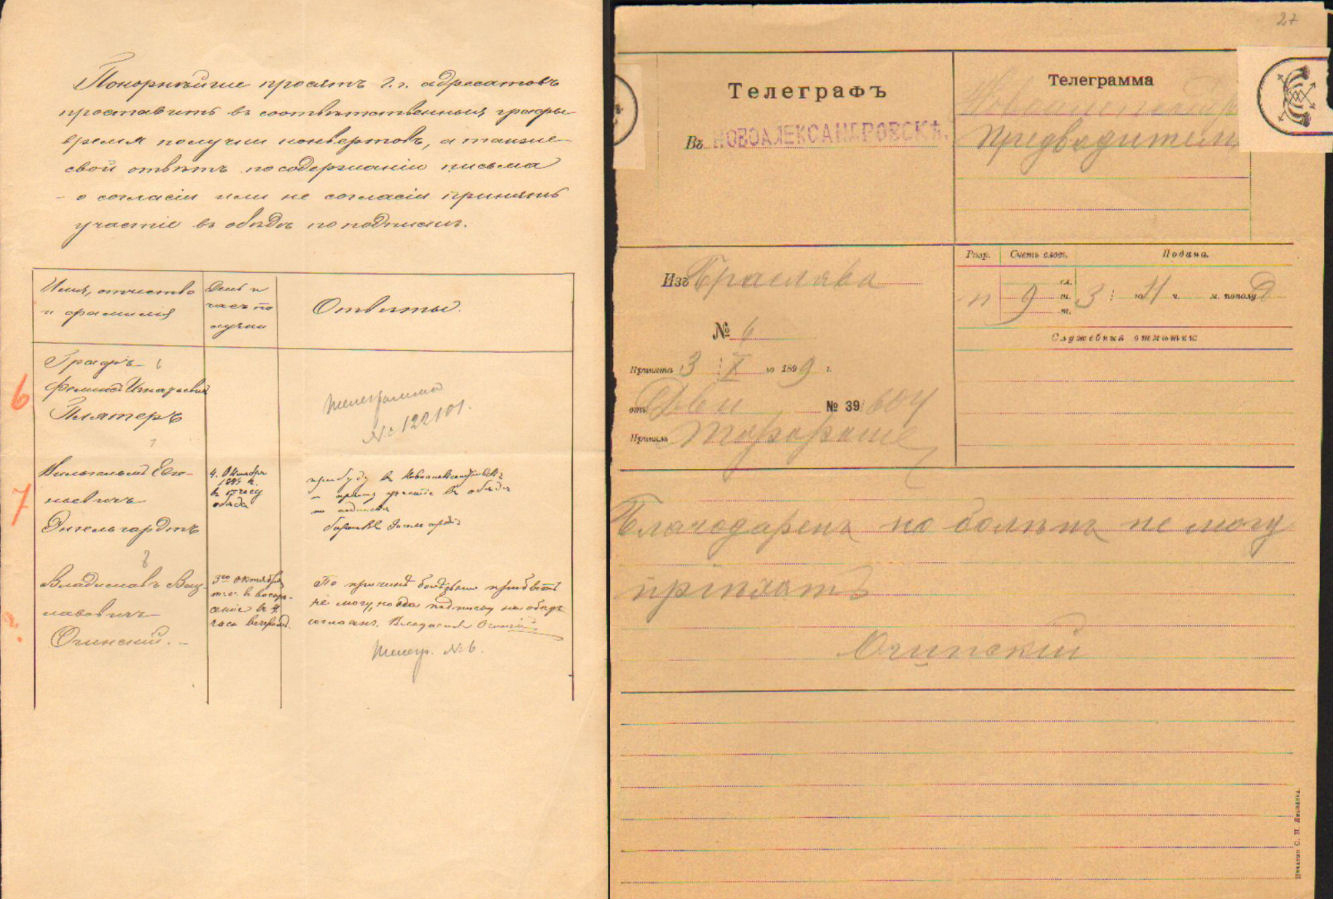 Покорнѣйше просятъ г.г. адресатовъ
проставить въ соотвѣтственныя графы
время получки конвертовъ, а также
свой отвѣтъ по содержанію письма
– о согласіи или не согласіи принять
участіе въ обѣдѣ по подпискѣ.
Имя, отчество
и фамилія
День и
часъ по
лучки
Отвѣты.
Графъ
Феликсъ Игнатьевичъ
Плятеръ
6
телеграмма
№ 122101.
7
Вильгельмъ Евге-
ньевичъ
Энгельгардтъ
4. Октября
обѣда
прибуду въ Новоалександровскъ
и приму участіе въ обѣдѣ
по подпискѣ
Владиславъ Вац-
лавовичъ
Огинский. –
3го октября
въ воскре-
сеніе въ 4
часа
По причинѣ болѣзни прибыть
не могу, на подписку на обѣдъ
согласенъ. Владиславъ Огинскій
Телегр. № 6.
27
Телеграфъ
Въ НОВОАЛЕКСАНДРОВСКѢ.
Телеграмма
Предводителю
Изъ Браслава
№ 6
Принята 3 : X го 1899 г.
отъ Дви № 39 604
Принялъ
Разр. Счетъ слов. Подана.
п 9 сл. 3 : го 4 ч. м. пополу д
Служебныя отмѣтки:
Благодаренъ но боленъ не могу
пріѣхать
Огинскій